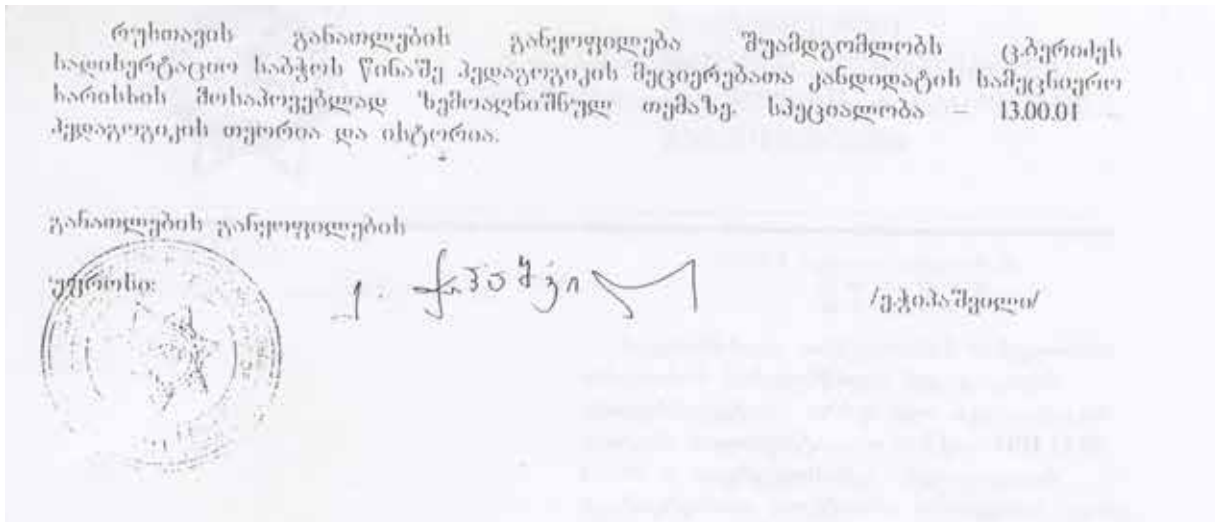 რუსთავის განათლების განყოფილება შუამდგომლობს ც.ბერიძეს
სადისერტაციო საბჭოს წინაშე პედაგოგიკის მეციერებათა კანდიდატის სამეცნიერო
ხარისხის მოსაპოვებლად ზემოაღნიშნულ თემაზე. სპეციალობა – 13.00.01
პედაგოგიკის თეორია და ისტორია.
განათლების განყოფილების
უფროსი:
/ე.ჭიპაშვილი/